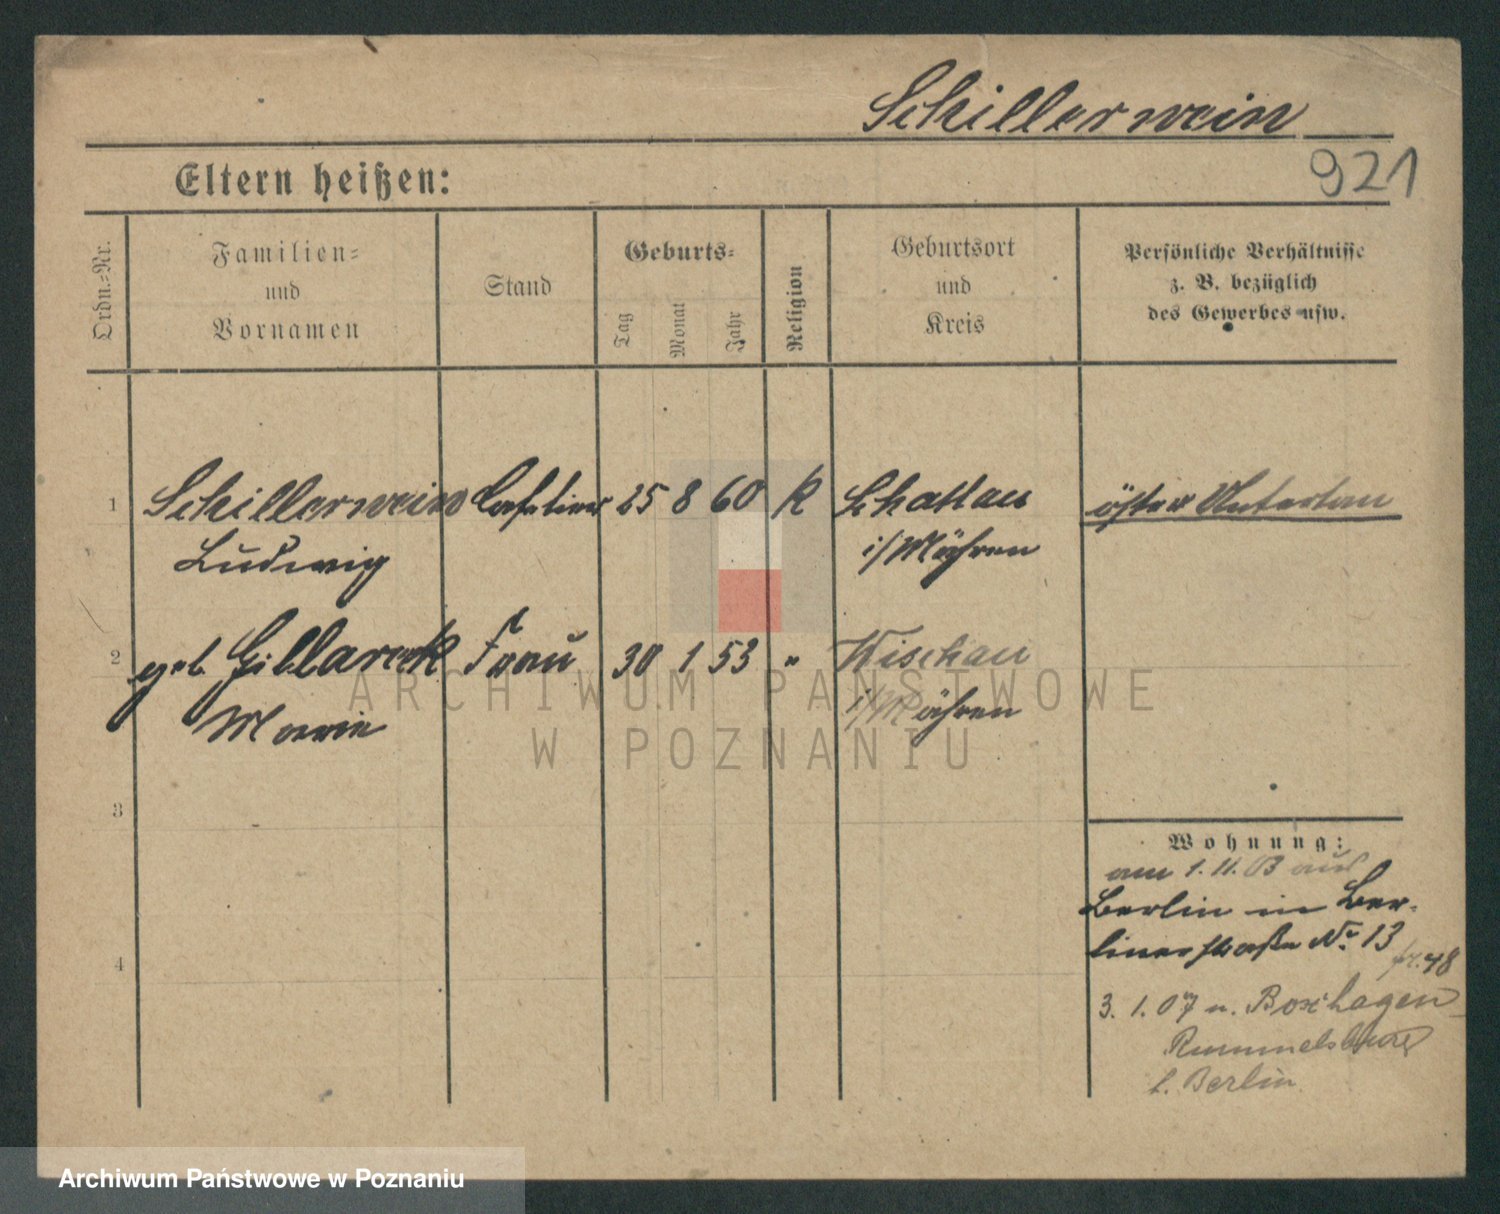 Schillerwein
921
Eltern heißen:
Ordn.-Nr.
Familien-
und
Vornamen
Stand
Geburts-
Tag
Monat
Jahr
Religion
Geburtsort
und
Kreis
Persönliche Verhältnisse
z. B. bezüglich
des Gewerbes usw.
1 Schillerwein Cafetier 25 8 60 K Schattau öster Untertan
Ludwig i/Mähren
2 geb Gillareck Frau 30 1 53 " Wischau
Marie i/Mähren
3
Wohnung:
am 1. 11. 03 aus
Berlin in Ber-
linerstraße No 13
4
48
3. 1. 07 n. Boxhagen-
Rummelsburg
b. Berlin
ARCHIWUM PAŃSTWOWE
W POZNANIU
Archiwum Państwowe w Poznaniu